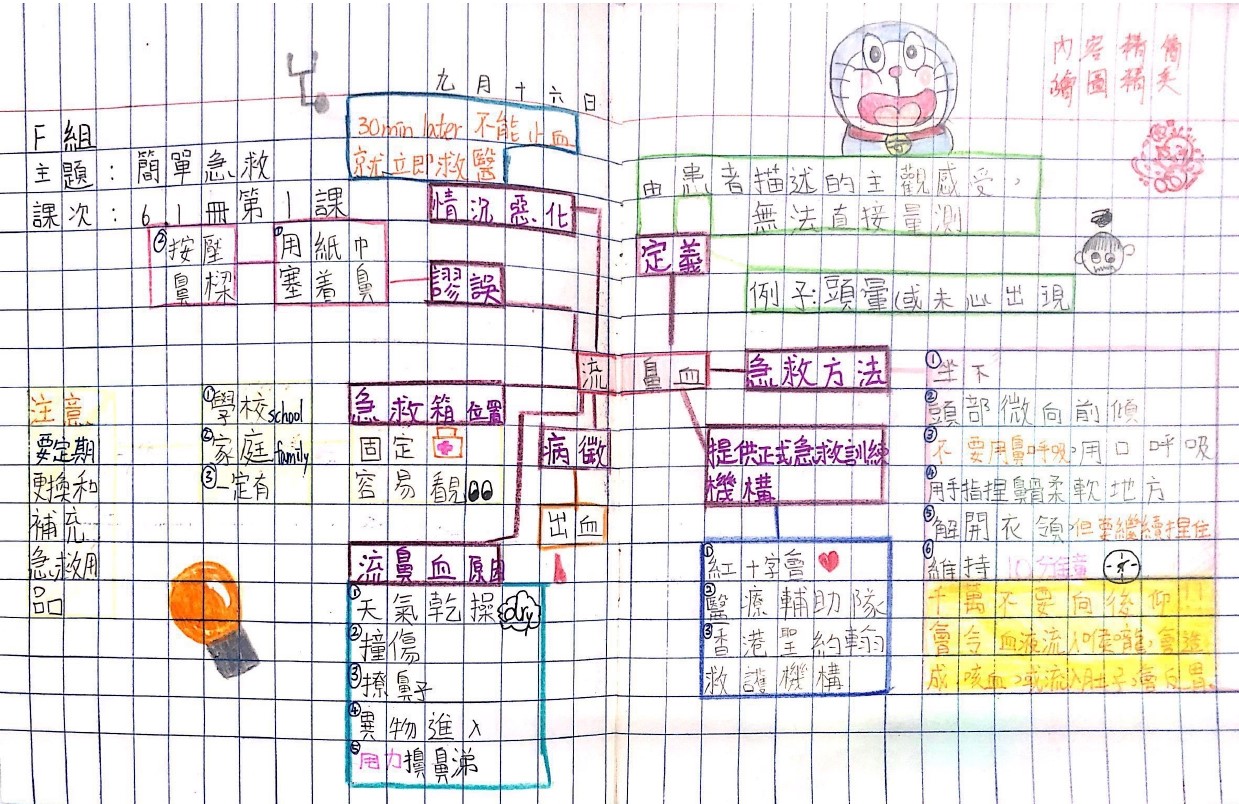 九月十六日
內容精備
繪圖精美
F組
主題：簡單急救
課次：6.1冊第1課
30min later 不能止血
就立即救醫
情況惡化
謬誤
①用紙巾
塞着鼻
②按壓
鼻樑
流鼻血
定義
由患者描述的主觀感受，
無法直接量測
例子：頭暈(或未必出現
急救方法
①坐下
②頭部微向前傾
③不要用鼻呼吸，用口呼吸
④用手指捏鼻骨柔軟地方
⑤解開衣領，但要繼續捏住
⑥維持10分鐘
千萬不要向後仰!!
會令血液流入喉嚨，會造
成咳血，或流入肚子，會反胃。
提供正式急救訓練
機構
①紅十字會
②醫療輔助隊
③香港聖約翰
救護機構
病徵
出血
急救箱位置
固定
容易看見
①學校school
②家庭family
③一定有
注意
要定期
更換和
補充
急救用
品
流鼻血原因
①天氣乾燥
dry
②撞傷
③撩鼻子
④異物進入
⑤用力擤鼻涕